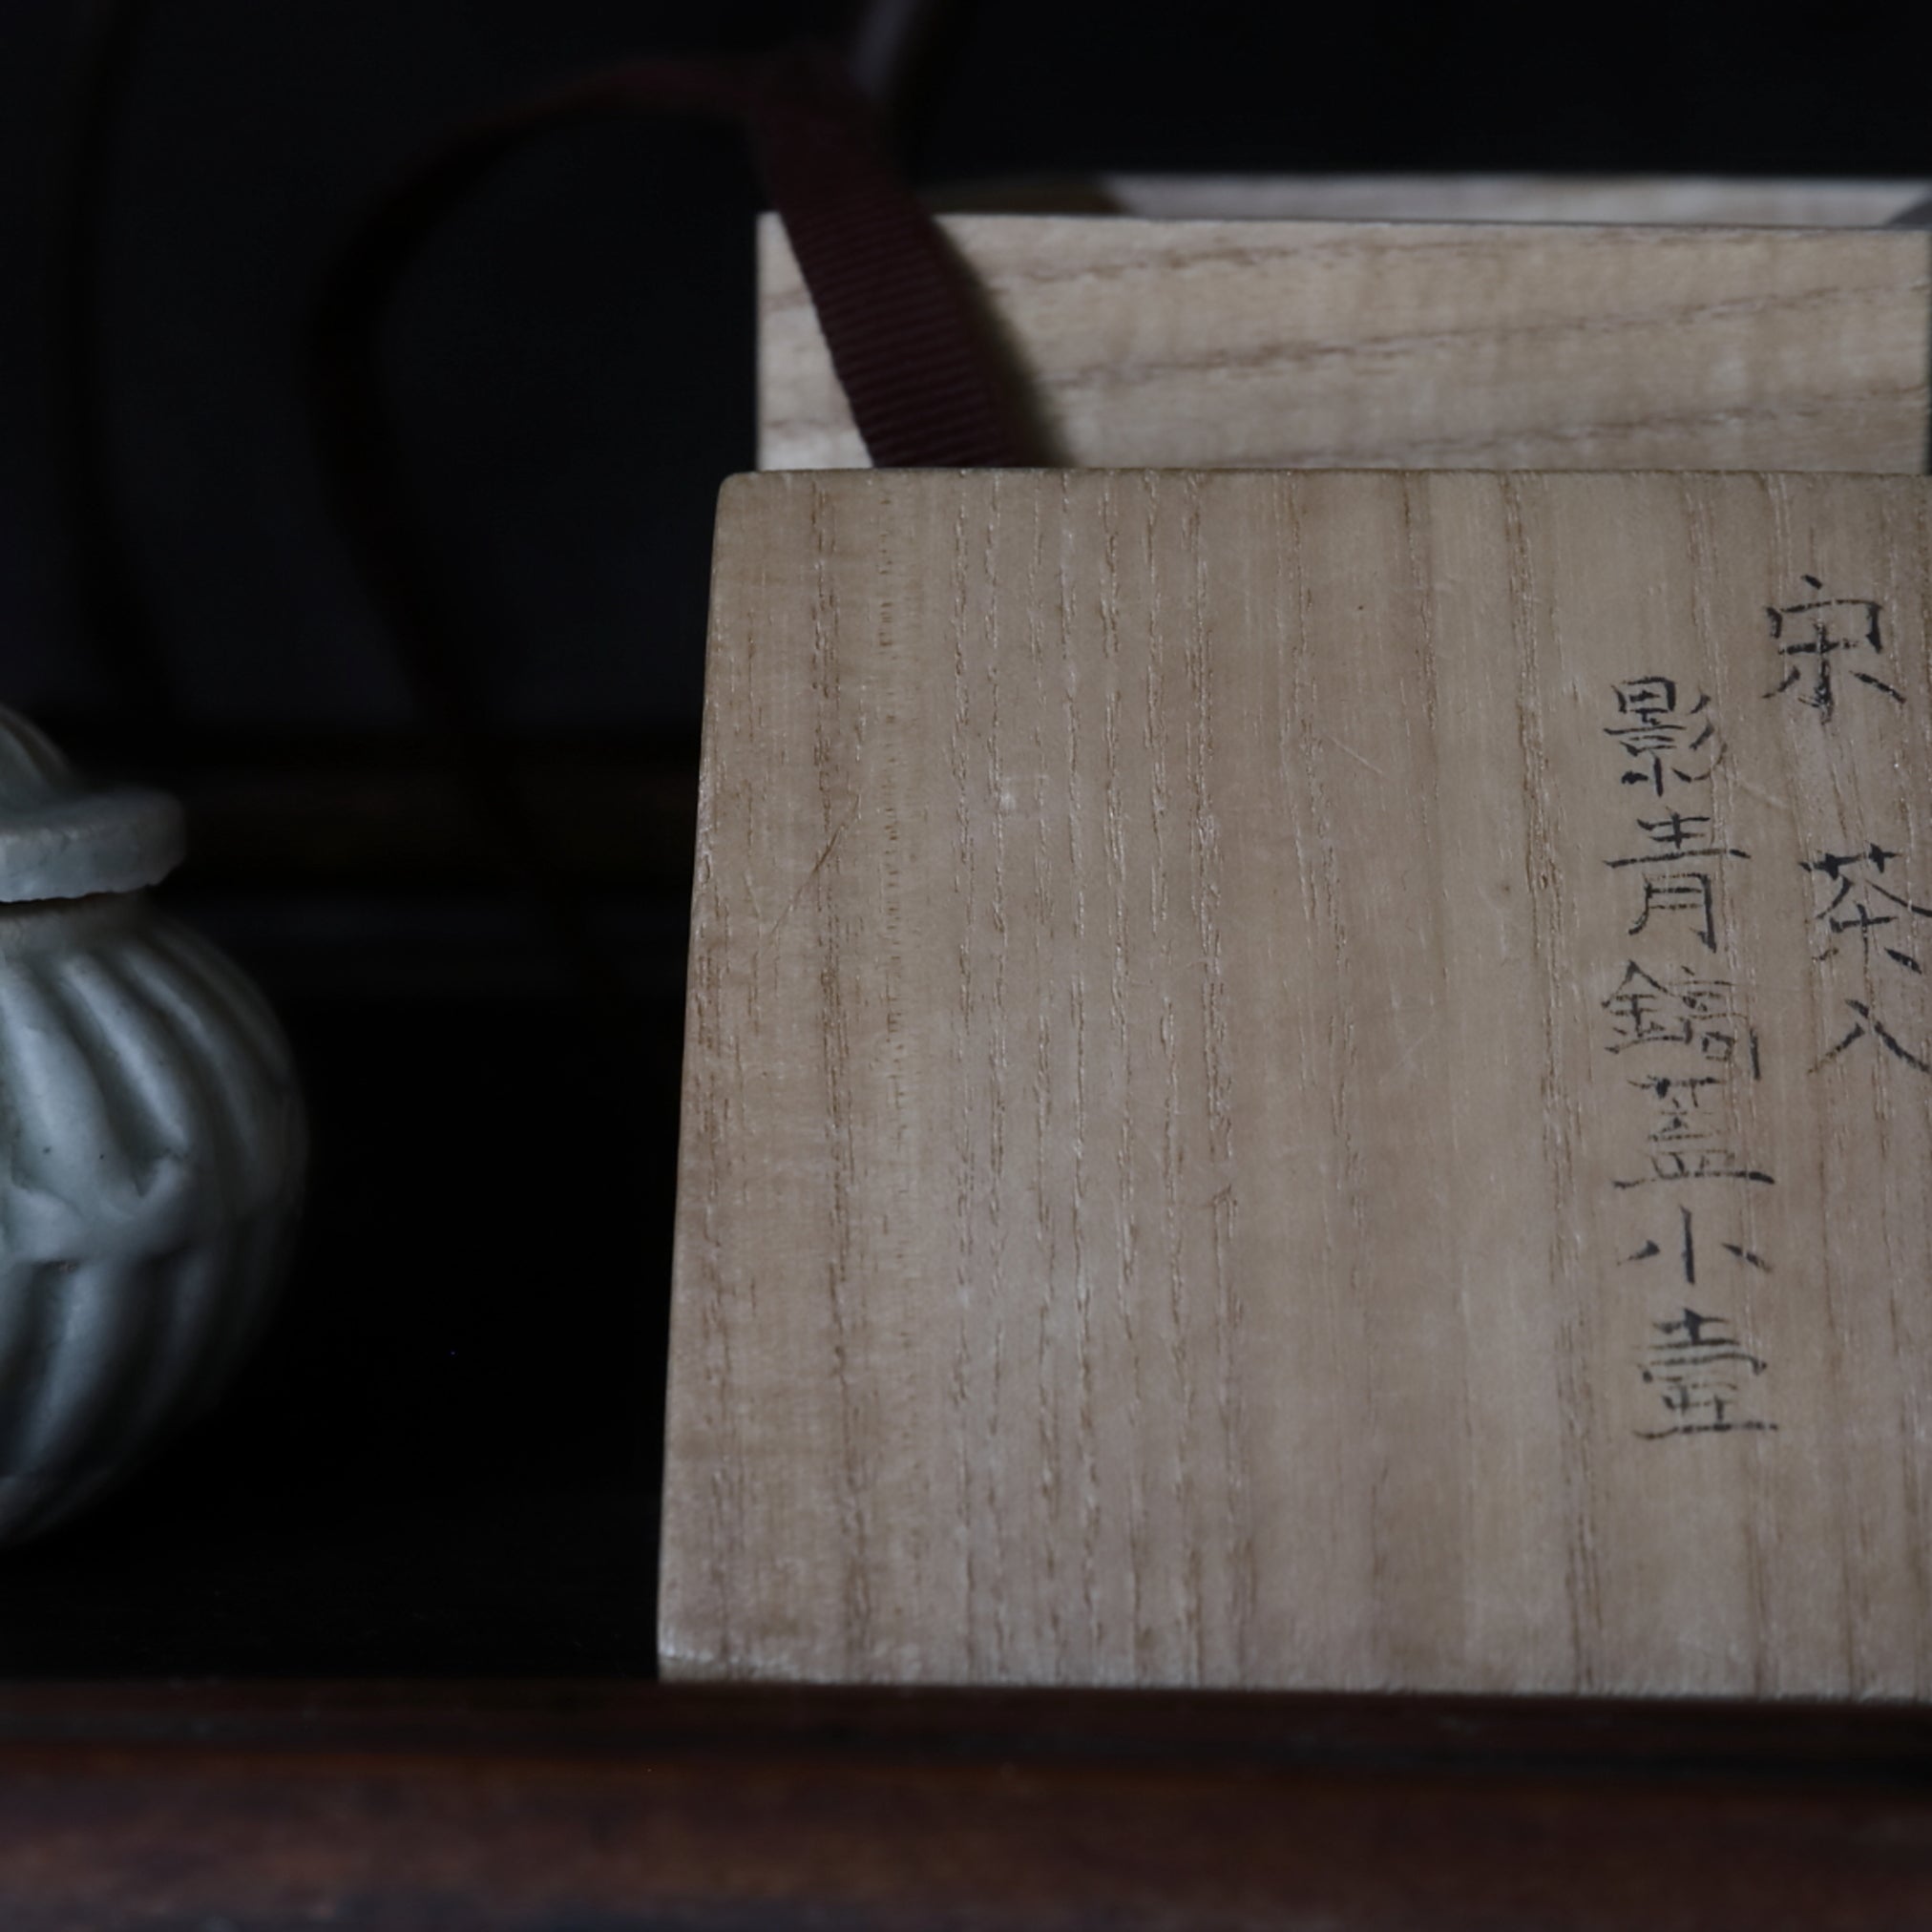 宋 茶入
影青鎬蓋小壺